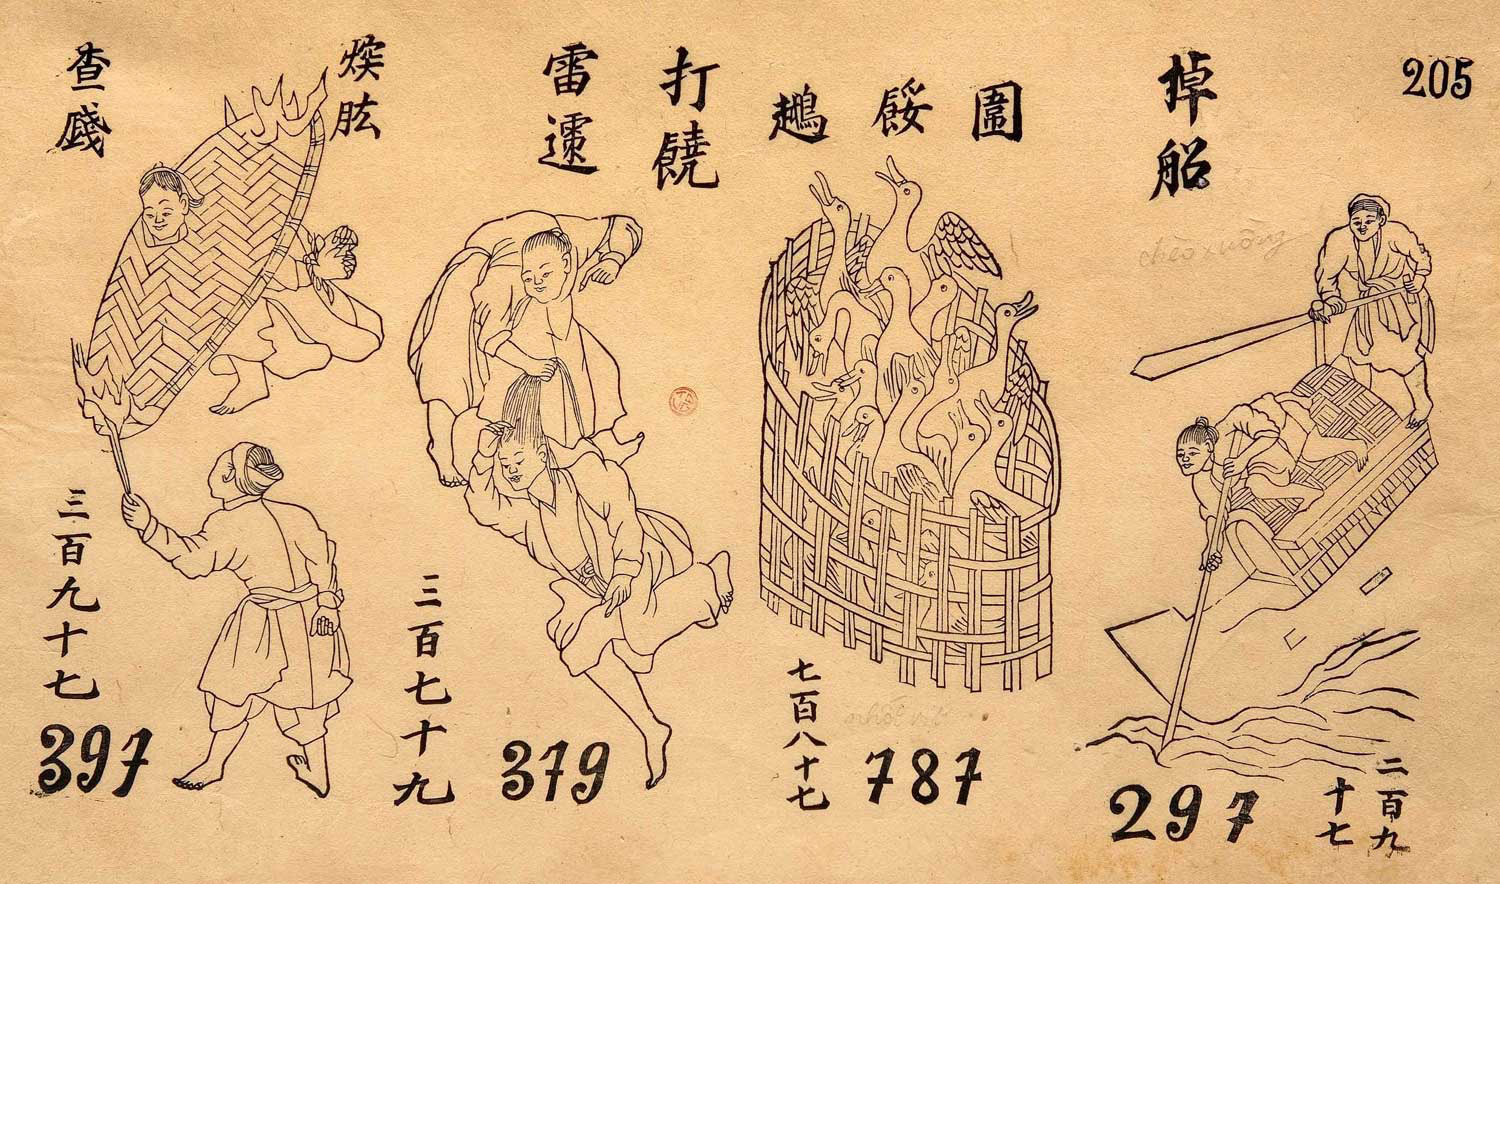 205
掉船
chèo xuồng
二百九
十七
297
圍餒𪆧
七百八十七
787
nhốt vịt
打饒
雷
三百七十九
379
肱
查
三百九十七
397